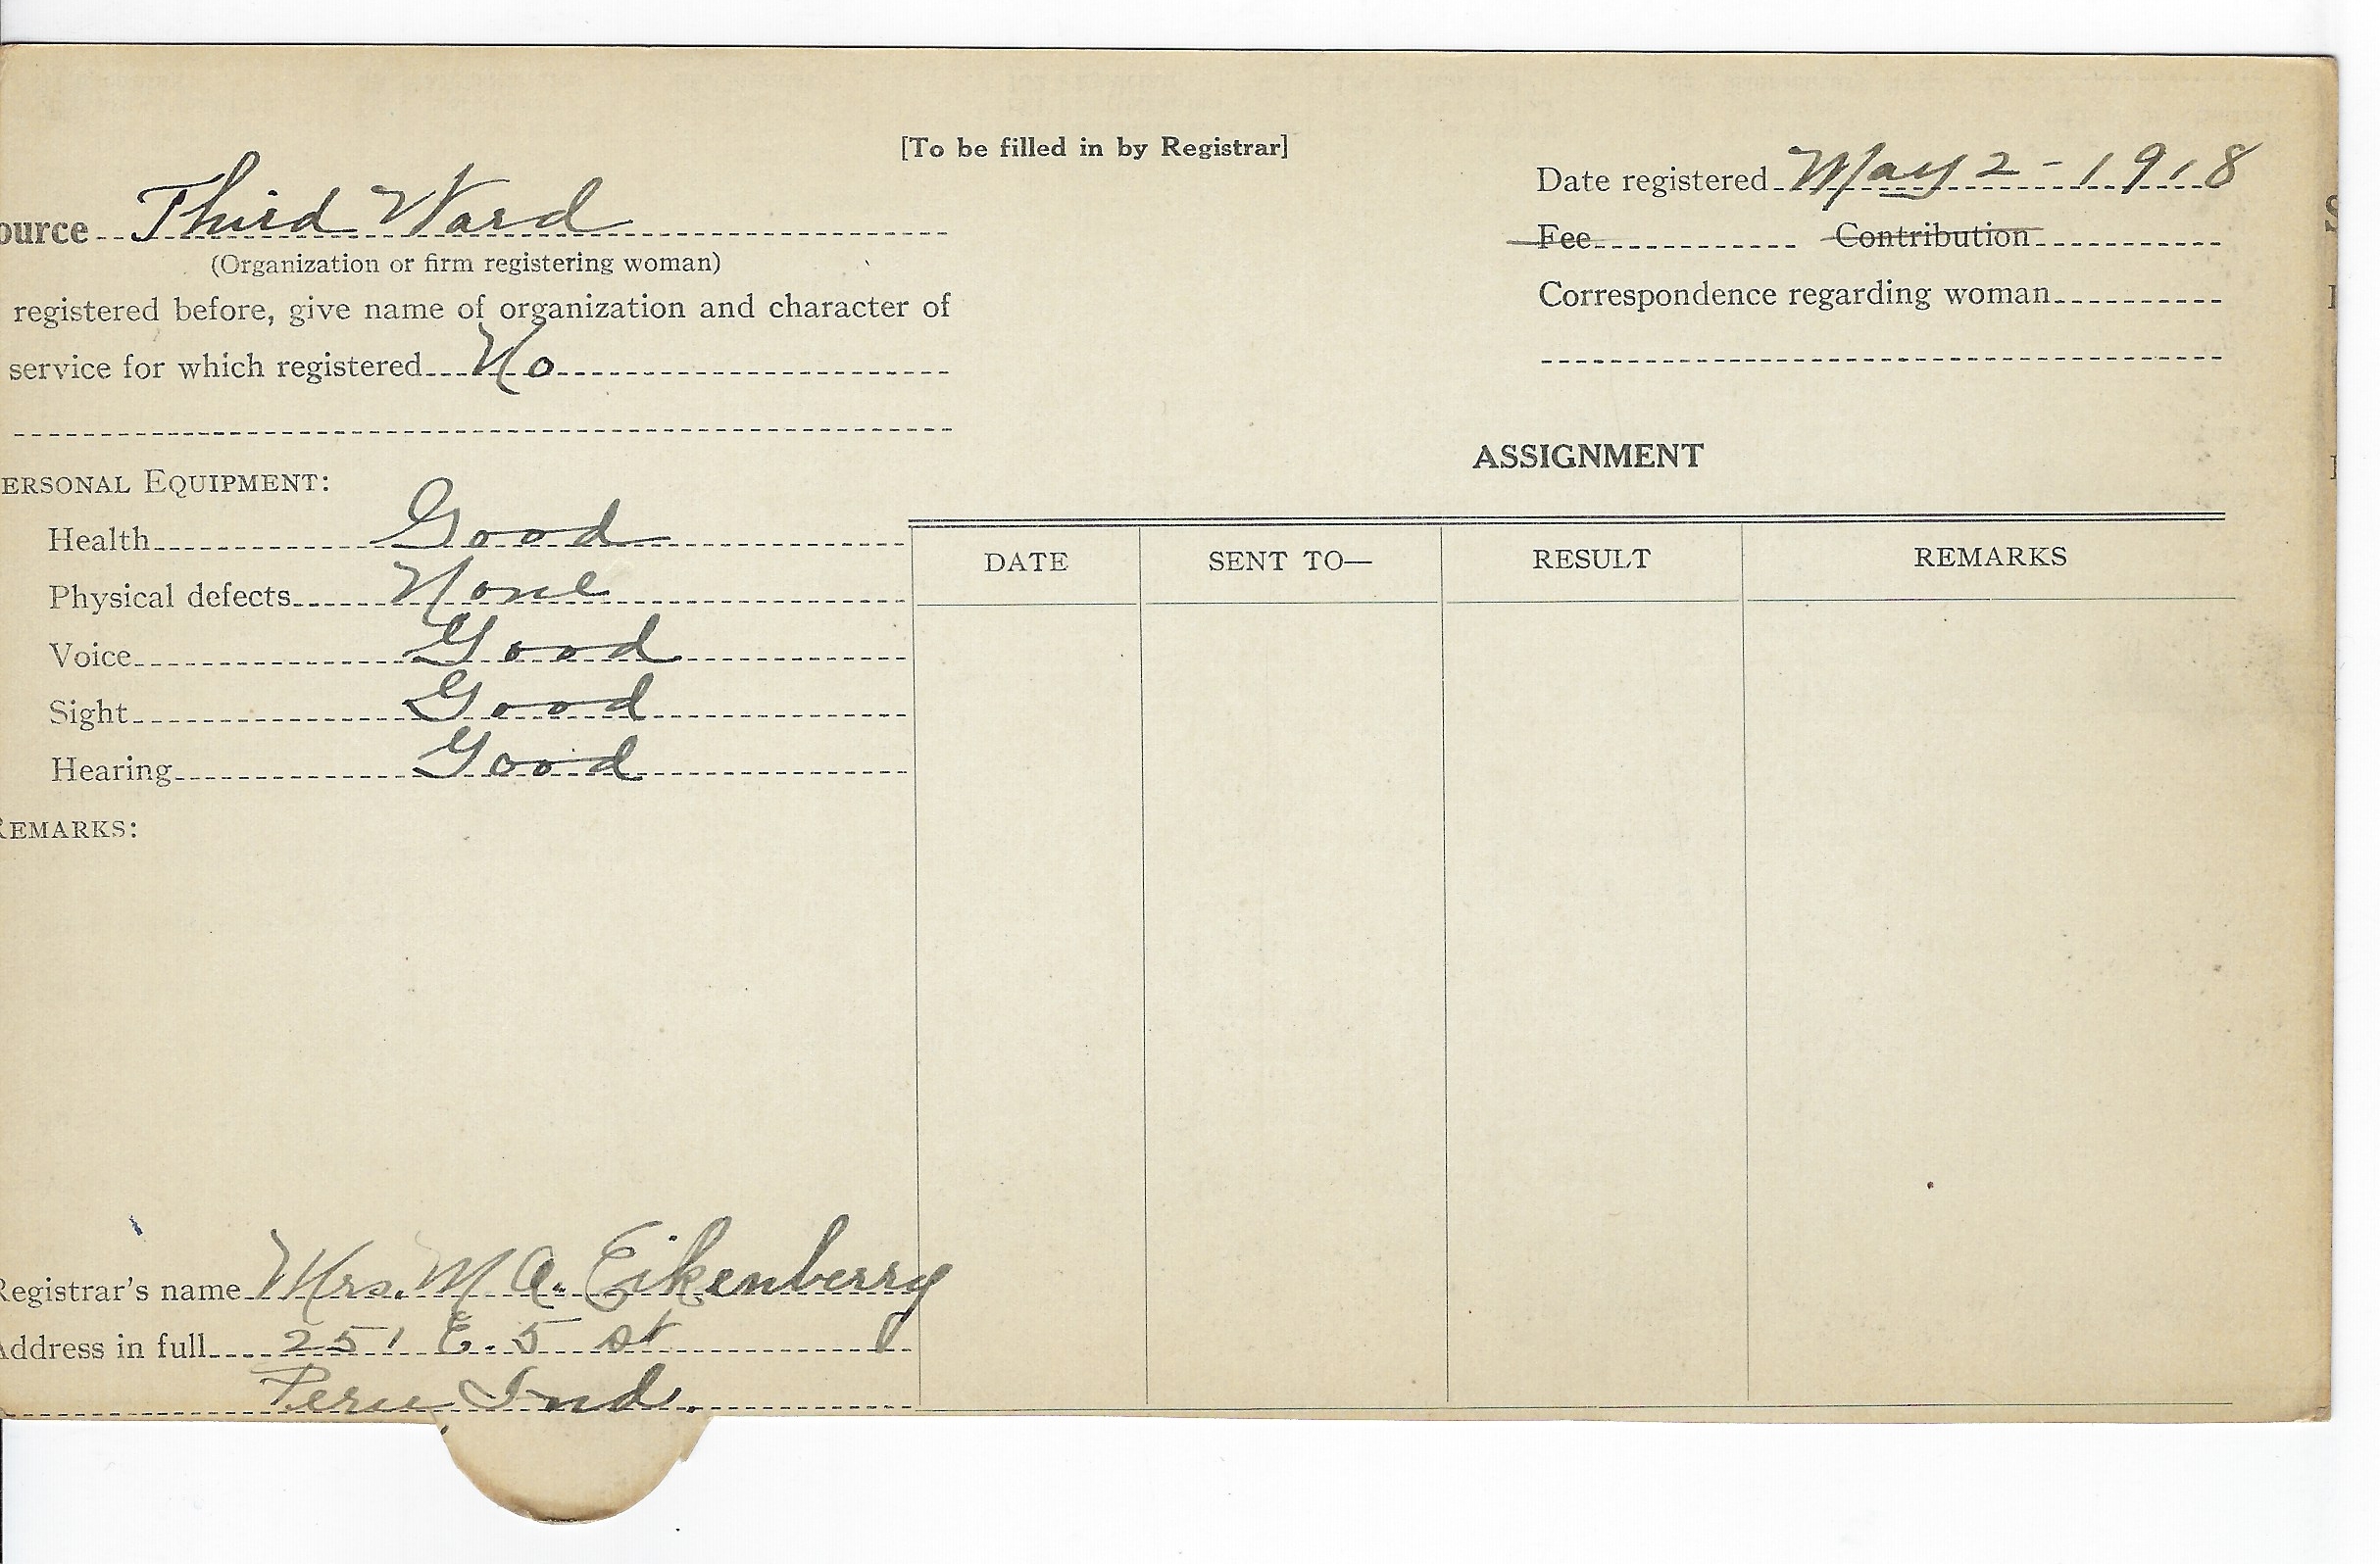 [To be filled in by Registrar]
ource Third Ward
(Organization or firm registering woman)
registered before, give name of organization and character of
service for which registered No
Date registered May 2 - 1918
Fee Contribution
Correspondence regarding woman
ERSONAL EQUIPMENT:
Health Good
Physical defects None
Voice Good
Sight Good
Hearing Good
REMARKS:
ASSIGNMENT
DATE SENT TO— RESULT REMARKS
Registrar's name Mrs. M A. Eikenberry
Address in full 251 E. 5 st
Peru Ind.